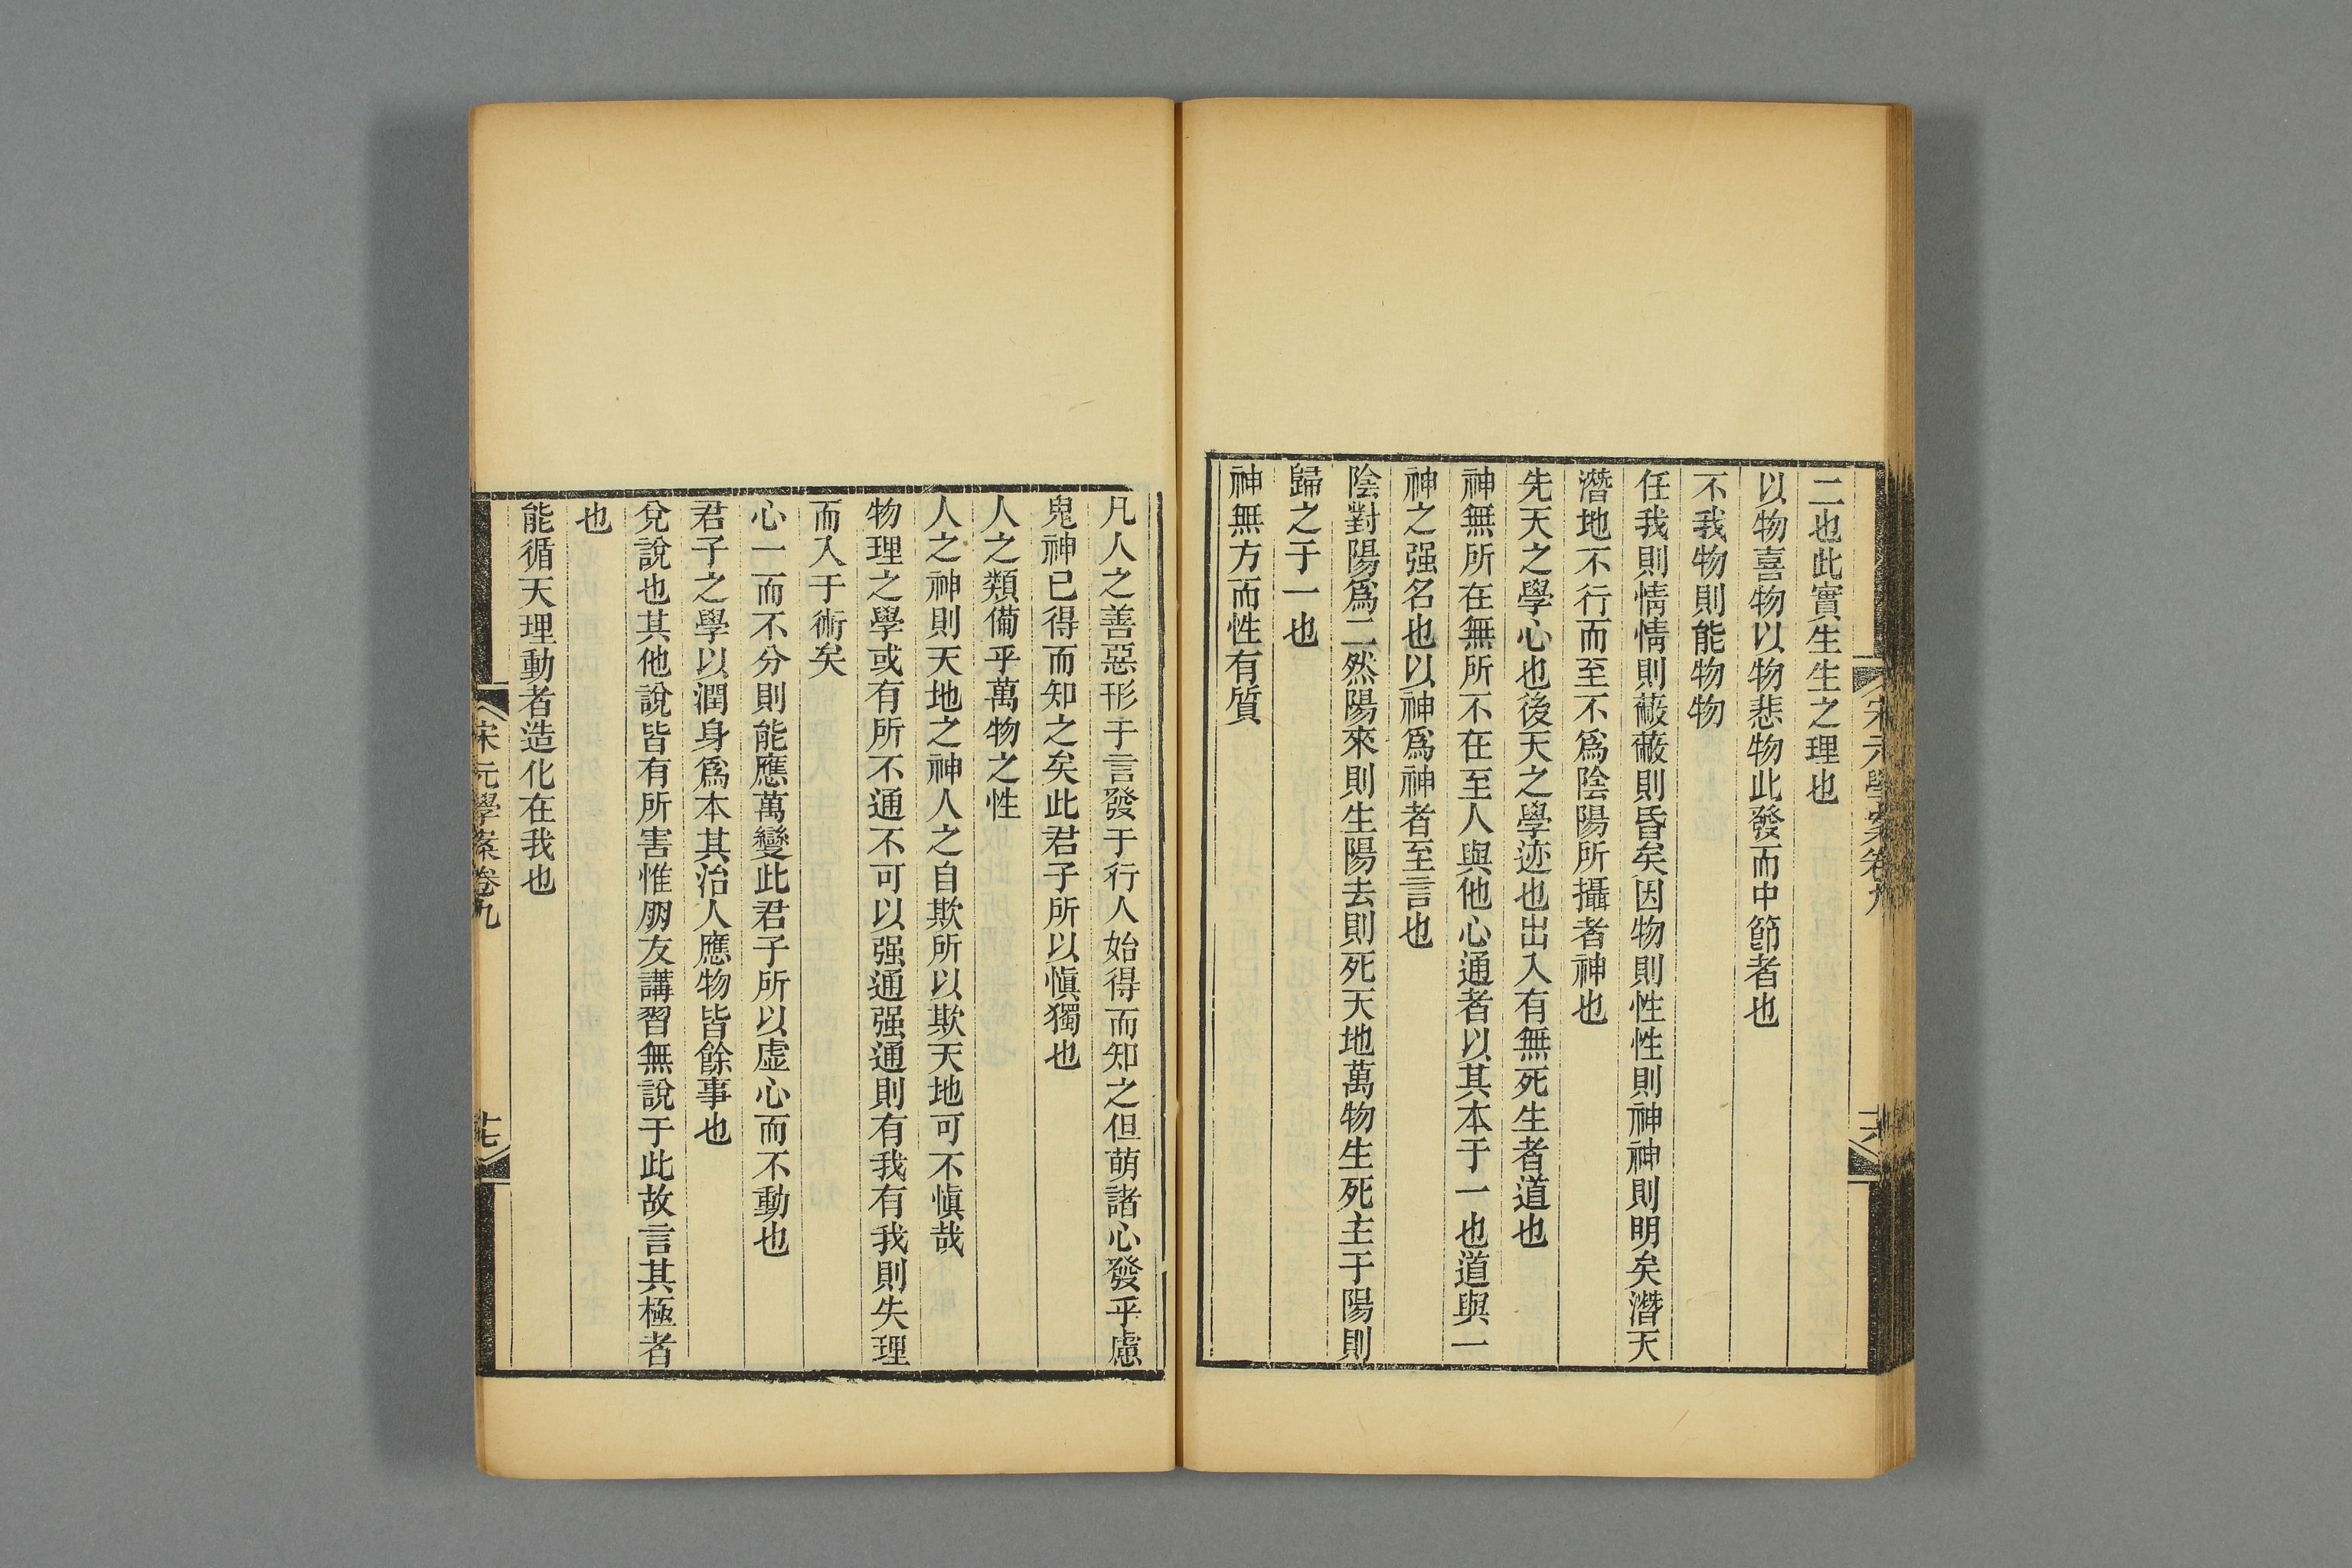 二也此實生生之理也
以物喜物以物悲物此發而中節者也
不我物則能物物
任我則情情則蔽蔽則昏矣因物則性性則神神則明矣潛天
潛地不行而至不爲陰陽所攝者神也
先天之學心也後天之學迹也出入有無死生者道也
神無所在無所不在至人與他心通者以其本于一也道與一
神之强名也以神爲神者至言也
陰對陽爲二然陽來則生陽去則死天地萬物生死主于陽則
歸之于一也
神無方而性有質
宋元學案卷九
十六
凡人之善惡形于言發于行人始得而知之但萌諸心發乎慮
鬼神已得而知之矣此君子所以愼獨也
人之類備乎萬物之性
人之神則天地之神人之自欺所以欺天地可不愼哉
物理之學或有所不通不可以强通强通則有我有我則失理
而入于術矣
心一而不分則能應萬變此君子所以虛心而不動也
君子之學以潤身爲本其治人應物皆餘事也
兌說也其他說皆有所害惟朋友講習無說于此故言其極者
也
能循天理動者造化在我也
宋元學案卷九
十七